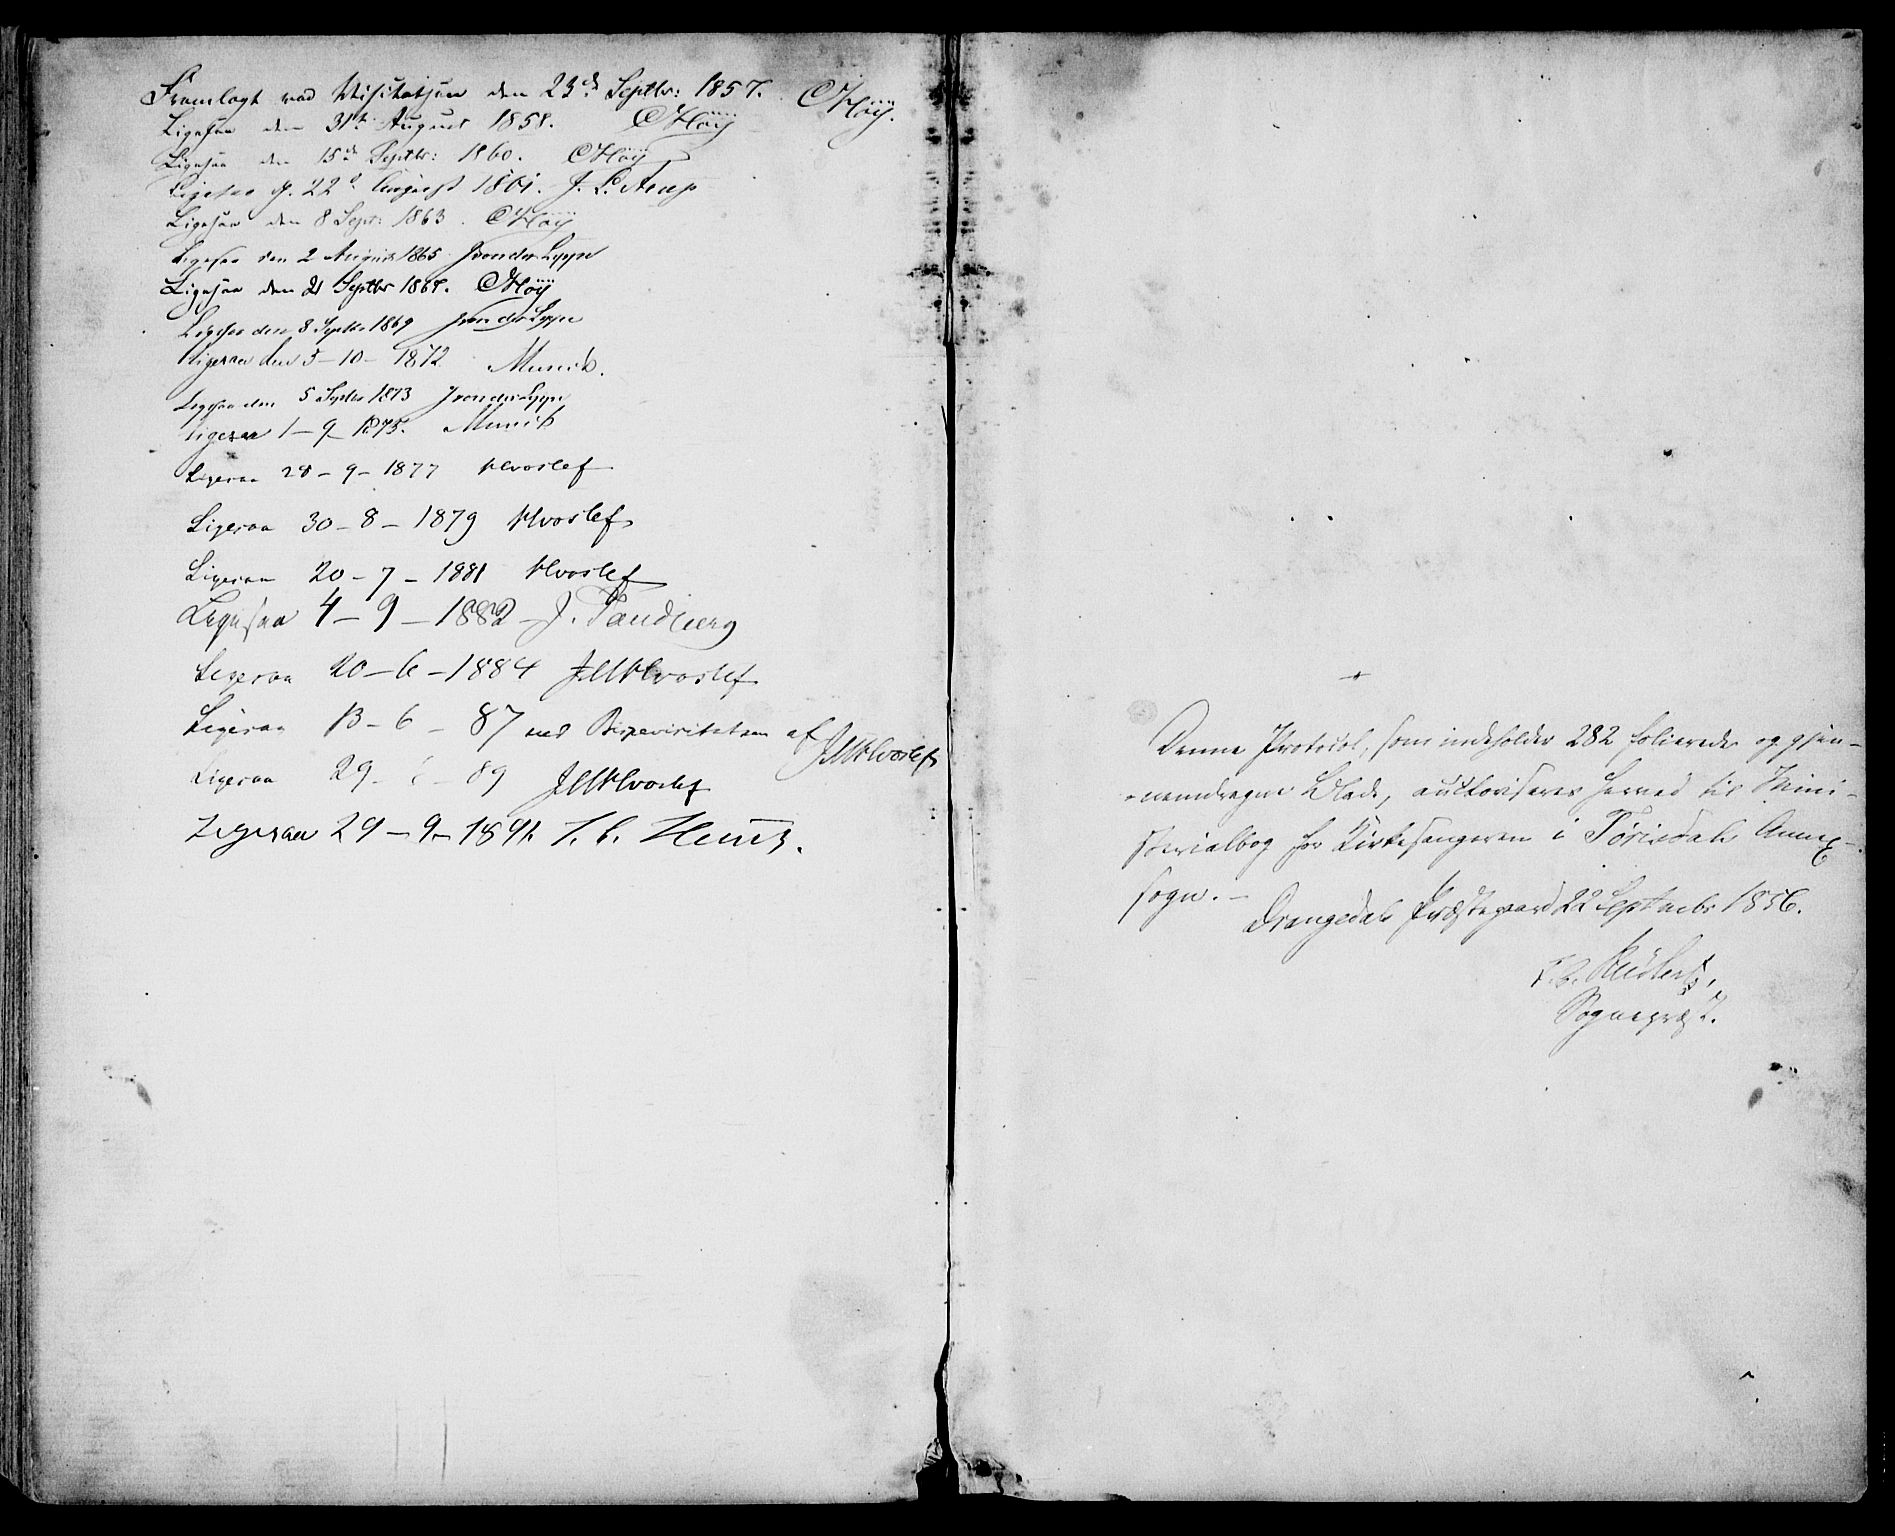 Fremlagt ved Visitatsen den 23de Septbr: 1857. CHöÿ.
Ligesaa den 31te August 1858. CHöÿ
Ligesaa den 15de Septbr: 1860. CHöÿ
Ligesaa d. 22d August 1861. J. L. Arup
Ligesaa den 8 Sept: 1863. CHöÿ
Ligesaa den 2 August 1865 J von der Lippe
Ligesaa den 21 Septbr 1867. CHöÿ
Ligesaa den 8 Septbr 1869 J von der Lippe
Ligesaa den 5-10-1872 Munch.
Ligesaa den 5 Septbr 1873 J von der Lippe
Ligesaa 1-9-1875. Munch
Ligesaa 28-9-1877 Hvoslef
Ligesaa 30-8-1879 Hvoslef
Ligesaa 20-7-1881 Hvoslef
Ligesaa 4-9-1882 - J. Tandberg
Ligesaa 20-6-1884 JMHvoslef
Ligesaa 13-6-87 ved Bispevisitatsen af JMHvoslef
Ligesaa 29- -89 JMHvoslef
Ligesaa 29-9-1891.
Denne Protocol, som indeholder 282 folierede og gjen-
nemdragne Blade, auctoriseres herved til Mini-
sterialbog for Kirkesangeren i Tørisdals Annex-
sogn. -
Drangedals Præstegaard 22 Septembr 1856.
Sognepræst.